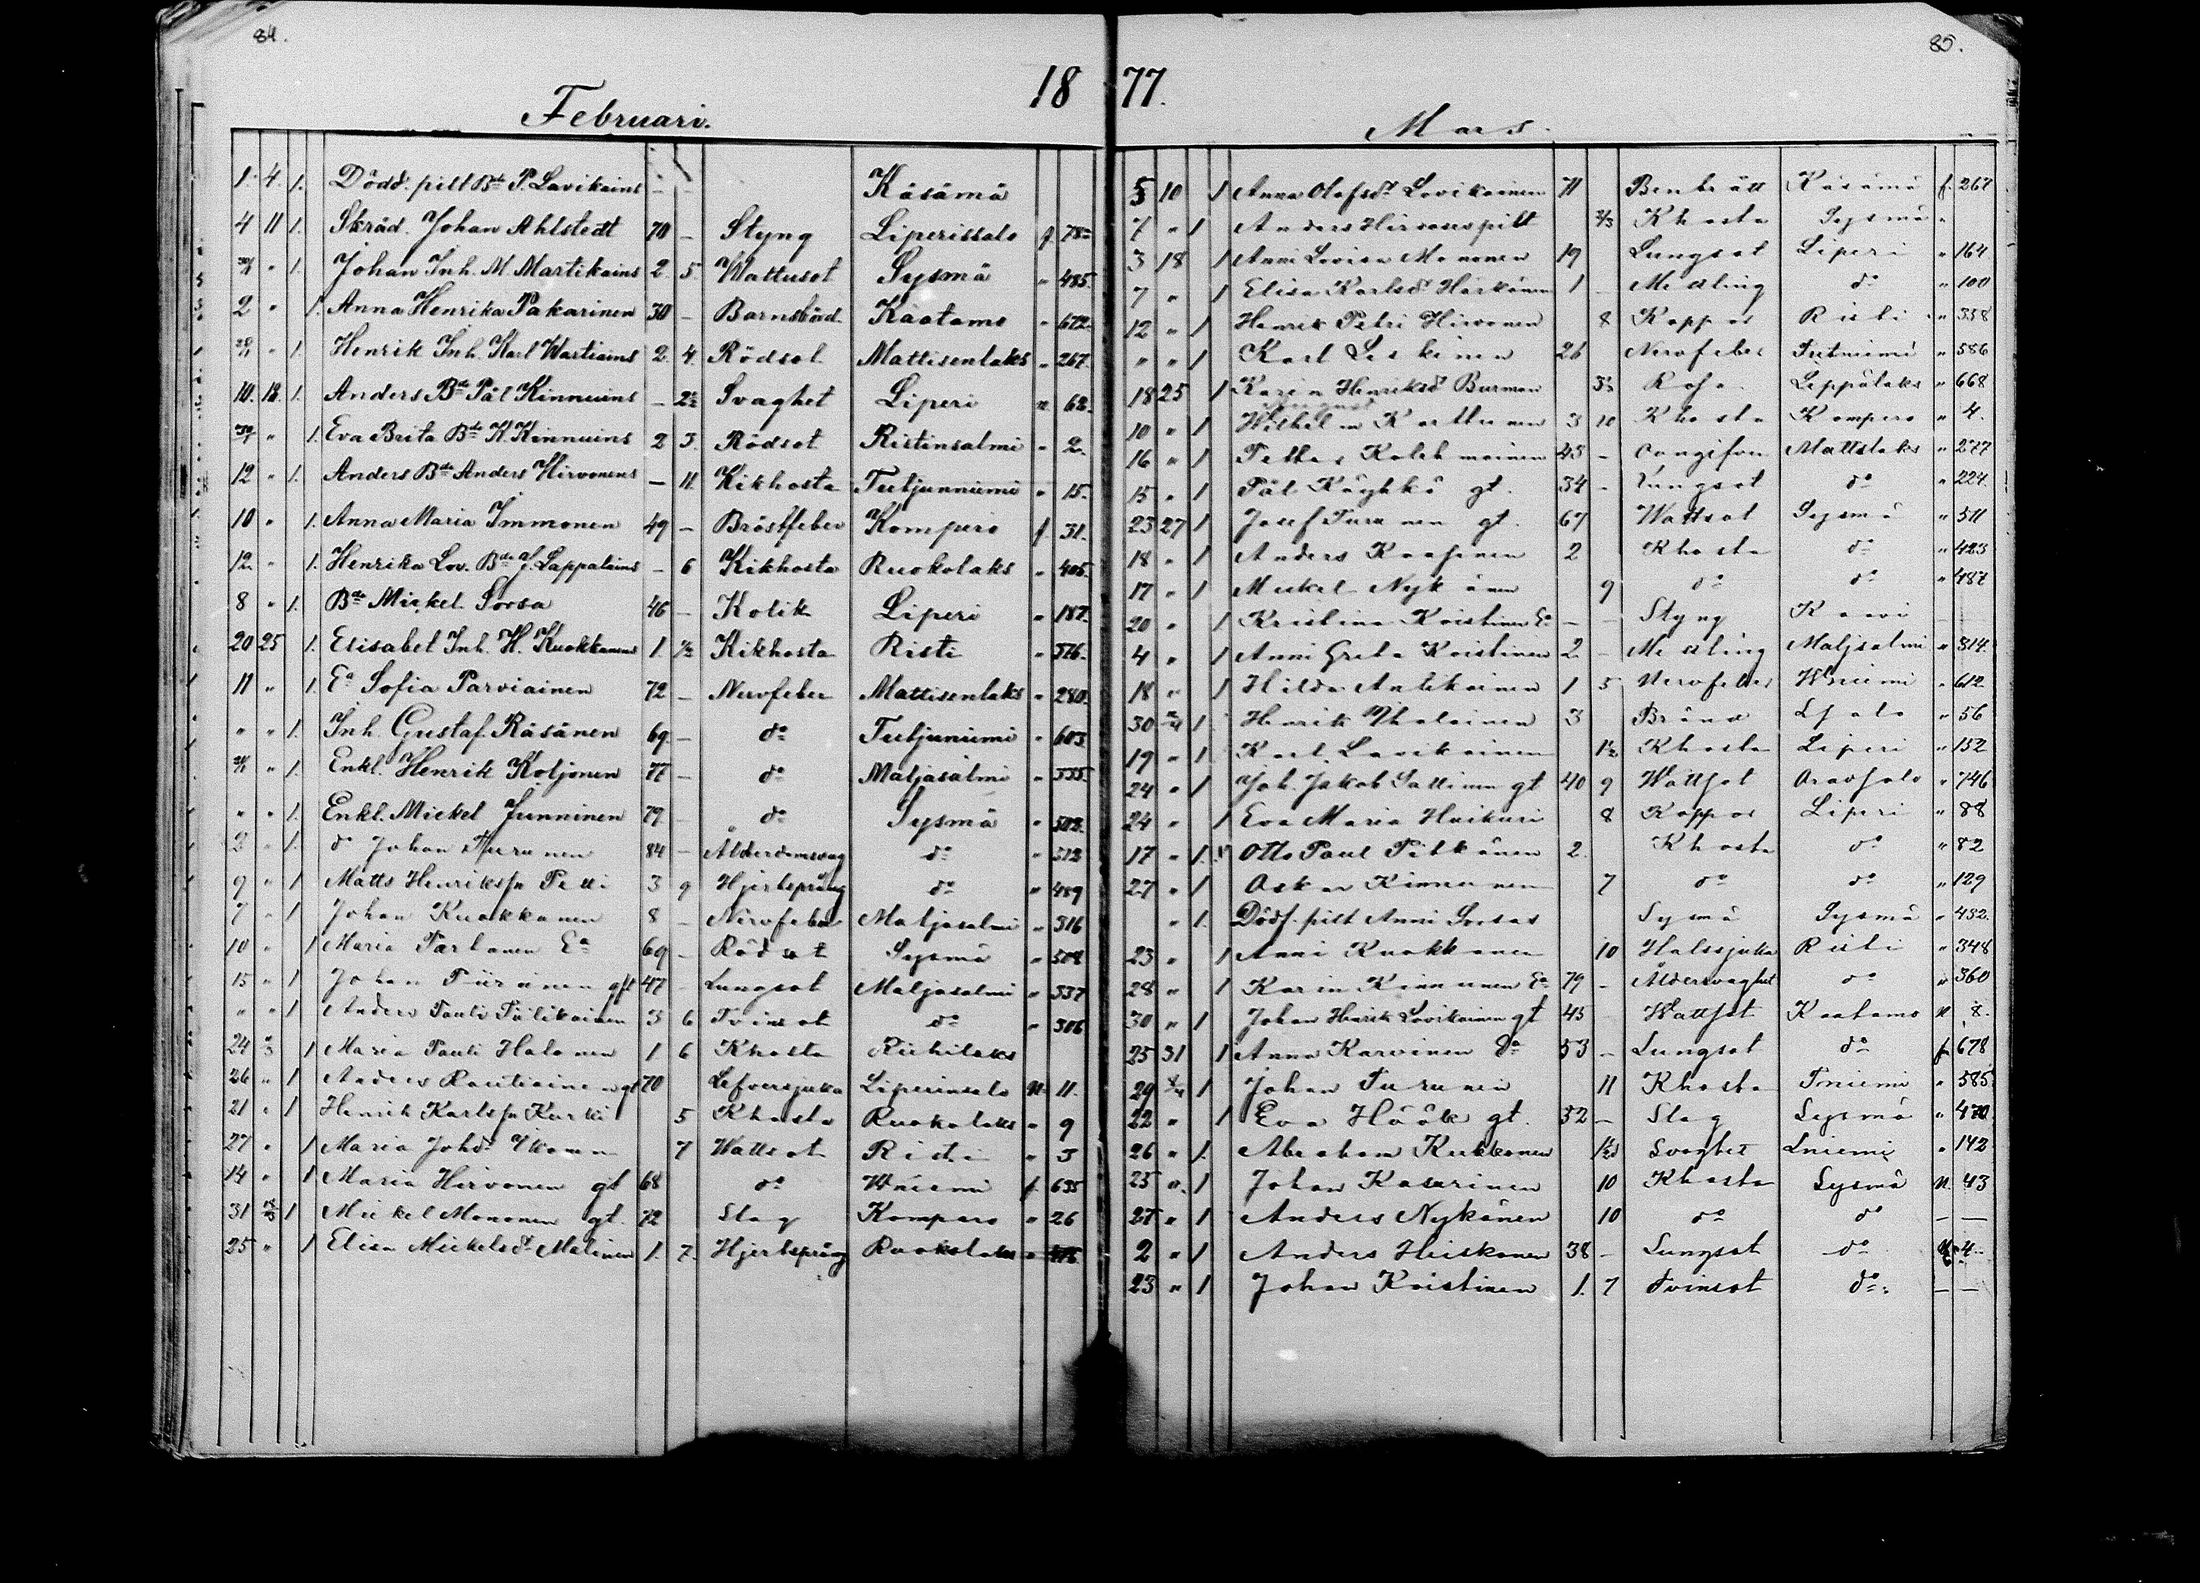 84.
1877.
Februari.
1. 4. 1. Dödd. pilt Bde P. Lavikains — — Käsämä
4 11 1. Skräd. Johan Ahlstedt 70 — Styng Liperissalo f 78
" 1. Johan Inh. M. Martikains 2. 5. Wattusot Sysmä " 485.
2 " 1. Anna Henrika Pakarinen 30 — Barnsbörd Kaatamo " 672.
" 1. Henrik Inh. Karl Wartiains 2. 4. Rödsot Mattisenlaks " 267.
10. 18. 1. Anders Bde Pål Kinnuins — 2½ Svaghet Liperi n 62.
" 1. Eva Brita Bde K. Kinnuins 2 3. Rödsot Ristinsalmi " 2.
12 " 1. Anders Bde Anders Hirvonens — 11. Kikhosta Tutjunniemi " 15.
10 " 1. Anna Maria Immonen 49 — Bröstfeber Kompero f 31.
12. " 1. Henrika Lov. Bde J. Lappalains — 6 Kikhosta Ruokolaks " 405.
8 " 1. Bde Mickel Sorsa 46 — Kolik Liperi " 187.
20 25 1. Elisabet Inh. H. Kuokkanens 1 ½ Kikhosta Risti " 376.
11 " 1. Ea Sofia Parviainen 72 — Nervfeber Mattisenlaks " 280.
" " 1. Inh. Gustaf Räsänen 69 — do Tutjuniemi " 603
" 1. Enkl. Henrik Koljonen 77 — do Maljasalmi " 335.
" " 1. Enkl. Mickel Junninen 79 — do Sysmä " 503.
2 " 1. do Johan Turunen 84 — Ålderdomsvag do " 512
9 " 1 Matts Henriksson Petti 3 9 Hjertspräng do " 489
7 " 1 Johan Kuokkanen 8 — Nervfeber Maljasalmi " 316
10 " 1 Maria Partanen Ea 69 — Rödsot Sysmä " 508
15 " 1 Johan Turunen gft 47 — Lungsot Maljasalmi " 337
" " 1 Anders Pauli Piilikainen 3 6 Tvinsot do " 306
24 1 Maria Pauli Halonen 1 6 Khosta Riihilaks
26 " 1 Anders Rautiainen gt 70 Lefversjuka Liperinsalo n 11.
21 " 1 Henrik Karlsson Kurki 5 Khosta Ruokolaks " 9
27 " 1 Maria Johdr Ikonen 7 Wattsot Risti " 3
14 " 1 Maria Hirvonen gt 68 do Wniemi f. 635
31 1 Mickel Mononen gt. 72 Slag Kompero " 26
25 " 1 Elisa Mickelsdr Malinen 1. 7. Hjertspräng Ruokolaks "
85.
Mars.
5 10 1 Anna Olofsdr Lavikainen 71 Benbrått Käsämä f. 267
7 " 1 Anders Hirvoses pilt Khosta Sysmä "
3 18 1 Anni Lovisa Mononen 19 Lungsot Liperi " 164
7 " 1 Elisa Karlsdr Harkönen 1 — Messling do " 100
12 " 1 Henrik Petri Hirvonen 8 Koppor Risti " 358
" " 1 Karl Leskinen 26 Nervfeber Tutniemi " 586
18 25 1 Karin Henriksdr Burman 3½ Rosen Leppälaks " 668
10 " 1 Wilhelm Korttunen 3 10 Khosta Kompero " 4.
16 " 1 Petter Kolehmainen 43 — Mattslaks " 277
15 " 1 Pål Käyhkö gt. 34 — Lungsot do " 224.
23 27 1 Josef Turunen gt. 67 Wattsot Sysmä " 511
18 " 1 Anders Kaasinen 2 Khosta do " 423
17 " 1 Mickel Nykänen 9 do do " 487
20 " 1 Kristina Koistinen Ea — — Styng Kaavi —
4 " 1 Anni Greta Koistinen 2 — Messling Maljsalmi " 314.
18 " 1 Hilda Antikainen 1 5 Nervfeber Wniemi " 612
30 1 Henrik Ihalainen 3 Bränd Lsalo " 56
19 " 1 Karl Lavikainen 1½ Khosta Liperi " 152
24 " 1 Joh. Jakob Sattinen gt 40 9 Wattsot Aravsalo " 746
24 " 1 Eva Maria Huikuri 8 Koppor Liperi " 88
17 " 1. Otto Paul Pitkänen 2. Khosta do " 82
27 " 1 Oskar Kinnunen 7 do do " 129
" 1. Dödf. pilt Anni Sorsas Sysmä Sysmä " 432.
23 " 1 Anni Kuokkanen 10 Halssjuka Risti " 348
28 " 1 Karin Kinnunen Ea 79 — Åldersvaghet do " 360
30 " 1 Johan Henrik Lavikainen gt 45 — Wattsot Kaatamo n 8.
25 31 1 Anna Karvinen Ea 53 — Lungsot do f. 678
29 1 Johan Turunen 11 Khosta Tniemi " 585
22 " 1 Eva Höök gt. 52 — Slag Sysmä " 470
26 " 1. Abraham Kukkonen Svaghet Lniemi " 142
25 " 1 Johan Kasurinen 10 Khosta Sysmä n. 43
27 " 1 Anders Nykänen 10 do do — —
2 " 1 Anders Heiskanen 38 — Lungsot do 4
23 " 1 Johan Koistinen 1. 7 Tvinsot do — —